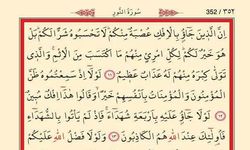 سُورَةُ النُّورِ
352 / ٣٥٢
اِنَّ الَّذ۪ينَ جَٓاؤُ۫ بِالْاِفْكِ عُصْبَةٌ مِنْكُمْۜ لَا تَحْسَبُوهُ شَرًّا لَكُمْۜ بَلْ
هُوَ خَيْرٌ لَكُمْۜ لِكُلِّ امْرِئٍ مِنْهُمْ مَا اكْتَسَبَ مِنَ الْاِثْمِۚ وَالَّذ۪ي
تَوَلّٰى كِبْرَهُ مِنْهُمْ لَهُ عَذَابٌ عَظ۪يمٌ ﴿١١﴾ لَوْلَٓا اِذْ سَمِعْتُمُوهُ ظَنَّ
الْمُؤْمِنُونَ وَالْمُؤْمِنَاتُ بِاَنْفُسِهِمْ خَيْرًاۙ وَقَالُوا هٰذَٓا اِفْكٌ مُب۪ينٌ
﴿١٢﴾ لَوْلَا جَٓاؤُ۫ عَلَيْهِ بِاَرْبَعَةِ شُهَدَٓاءَۚ فَاِذْ لَمْ يَأْتُوا بِالشُّهَدَٓاءِ
فَاُو۬لٰٓئِكَ عِنْدَ اللّٰهِ هُمُ الْكَاذِبُونَ ﴿١٣﴾ وَلَوْلَا فَضْلُ اللّٰهِ عَلَيْكُمْ